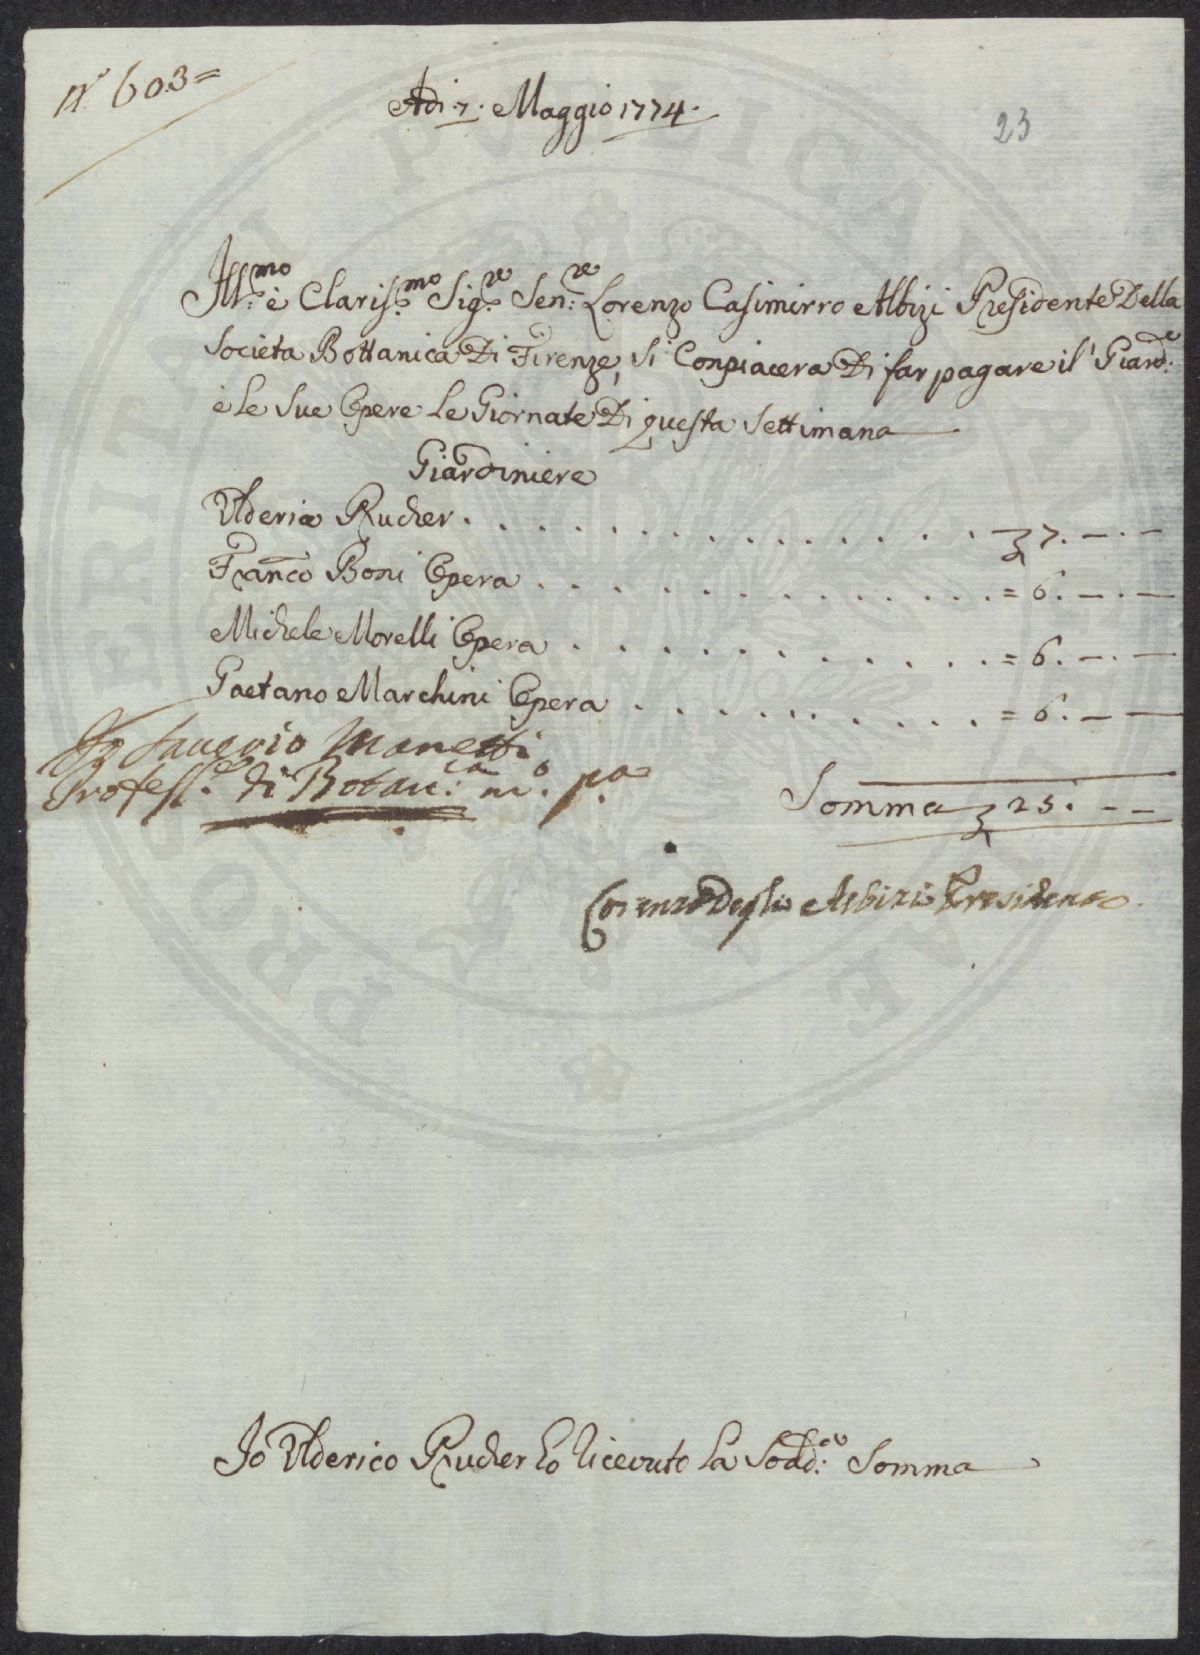 N.º 603=
Adi 7. Maggio 1774.
23
Ill:mo è Claris:mo Sig:re Sen:re Lorenzo Casimirro Albizi Presidente Della
Societa Bottanica Di Firenze, Si Conpiacera Di far pagare il' Giard:e
è le Sue Opere Le Giornate Di questa Settimana
Giardiniere
Ulderico Rucher . . . . . . . . . . . . . 7. — . —
Franco Boni Opera . . . . . . . . . . . . = 6. — . —
Michele Morelli Opera . . . . . . . . . . . = 6. — . —
Gaetano Marchini Opera . . . . . . . . . = 6. — —
Io Saverio Manetti
Profess:e di Botan:ca m.o p.a
Somma 25. — —
Lorenzo Degli Albizi Presidente
Io Ulderico Rucher ho Ricevuto La Sodd:a Somma
PROSPERI PVBLICAE